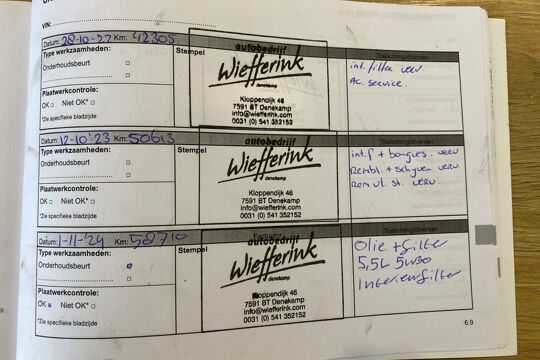 VIN:
Datum: 28-10-22 Km: 42305
Type werkzaamheden:
Onderhoudsbeurt
Plaatwerkcontrole:
OK Niet OK*
*Zie specifieke bladzijde
Stempel
autobedrijf
Wiefferink
Kloppendijk 46
7591 BT Denekamp
info@wiefferink.com
0031 (0) 541 352152
Toelichting/diversen
int. filter verv.
Ac. service.
Datum: 12-10-'23 Km: 50613
Type werkzaamheden:
Onderhoudsbeurt
Plaatwerkcontrole:
OK Niet OK*
*Zie specifieke bladzijde
Stempel
autobedrijf
Wiefferink
denekamp
Kloppendijk 46
7591 BT Denekamp
info@wiefferink.com
0031 (0) 541 352152
Toelichting/diversen
int.f + bougies verv
Rembl + schyven verv
Remvl. st. verv.
Datum: 1-11-'24 Km: 58710
Type werkzaamheden:
Onderhoudsbeurt
Plaatwerkcontrole:
OK Niet OK*
*Zie specifieke bladzijde
Stempel
autobedrijf
Wiefferink
denekamp
Kloppendijk 46
7591 BT Denekamp
info@wiefferink.com
0031 (0) 541 352152
Toelichting/diversen
Olie + filter
5,5L 5W30
Interieurfilter
6.9